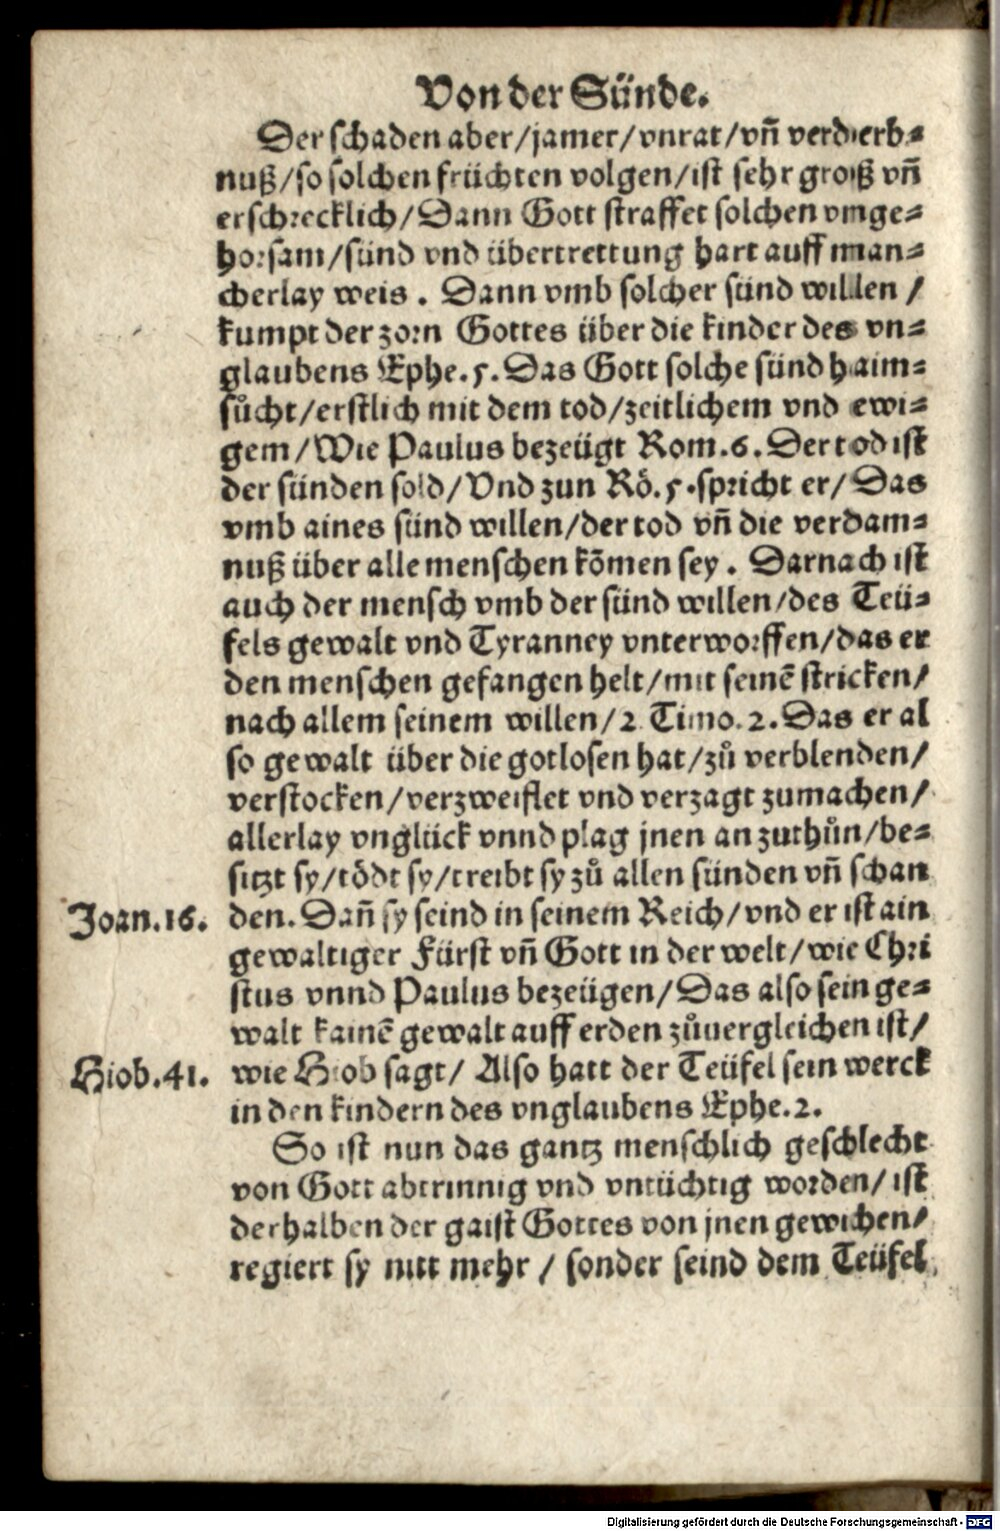 Von der Sünde.
Der schaden aber/jamer/vnrat/vñ verdierb⸗
nuß/so solchen früchten volgen/ist sehr groß vñ
erschrecklich/Dann Gott straffet solchen vnge⸗
horsam/sünd vnd übertrettung hart auff man⸗
cherlay weis. Dann vmb solcher sünd willen /
kumpt der zorn Gottes über die kinder des vn⸗
glaubens Ephe.5. Das Gott solche sünd haim⸗
sůcht/erstlich mit dem tod/zeitlichem vnd ewi⸗
gem/Wie Paulus bezeügt Rom.6. Der tod ist
der sünden sold/Vnd zun Rö.5. spricht er/Das
vmb aines sünd willen/der tod vñ die verdam⸗
nuß über alle menschen kõmen sey. Darnach ist
auch der mensch vmb der sünd willen/des Teü⸗
fels gewalt vnd Tyranney vnterworffen/das er
den menschen gefangen helt/mit seinẽ stricken/
nach allem seinem willen/2 Timo.2. Das er al
so gewalt über die gotlosen hat/zů verblenden/
verstocken/verzweiflet vnd verzagt zumachen/
allerlay vnglück vnnd plag jnen an zuthůn/be⸗
sitzt sy/tödt sy/treibt sy zů allen sünden vñ schan
Joan.16. den. Dañ sy seind in seinem Reich/vnd er ist ain
gewaltiger Fürst vñ Gott in der welt/wie Chri
stus vnnd Paulus bezeügen/Das also sein ge⸗
walt kainẽ gewalt auff erden zůuergleichen ist/
Hiob.41. wie Hiob sagt/ Also hatt der Teüfel sein werck
in den kindern des vnglaubens Ephe.2.
So ist nun das gantz menschlich geschlecht
von Gott abtrinnig vnd vntüchtig worden/ist
derhalben der gaist Gottes von jnen gewichen/
regiert sy nitt mehr / sonder seind dem Teüfel
Digitalisierung gefördert durch die Deutsche Forschungsgemeinschaft - DFG